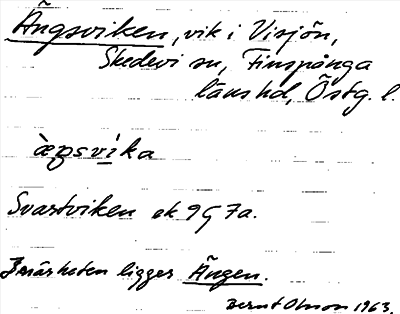 Ängsviken, vik i Visjön,
Skedevi sn, Finspånga
läns hd, Östg. l.
Svartviken ek 9G 7a.
I närheten ligger Ängen.
Bernt Olsson 1963.